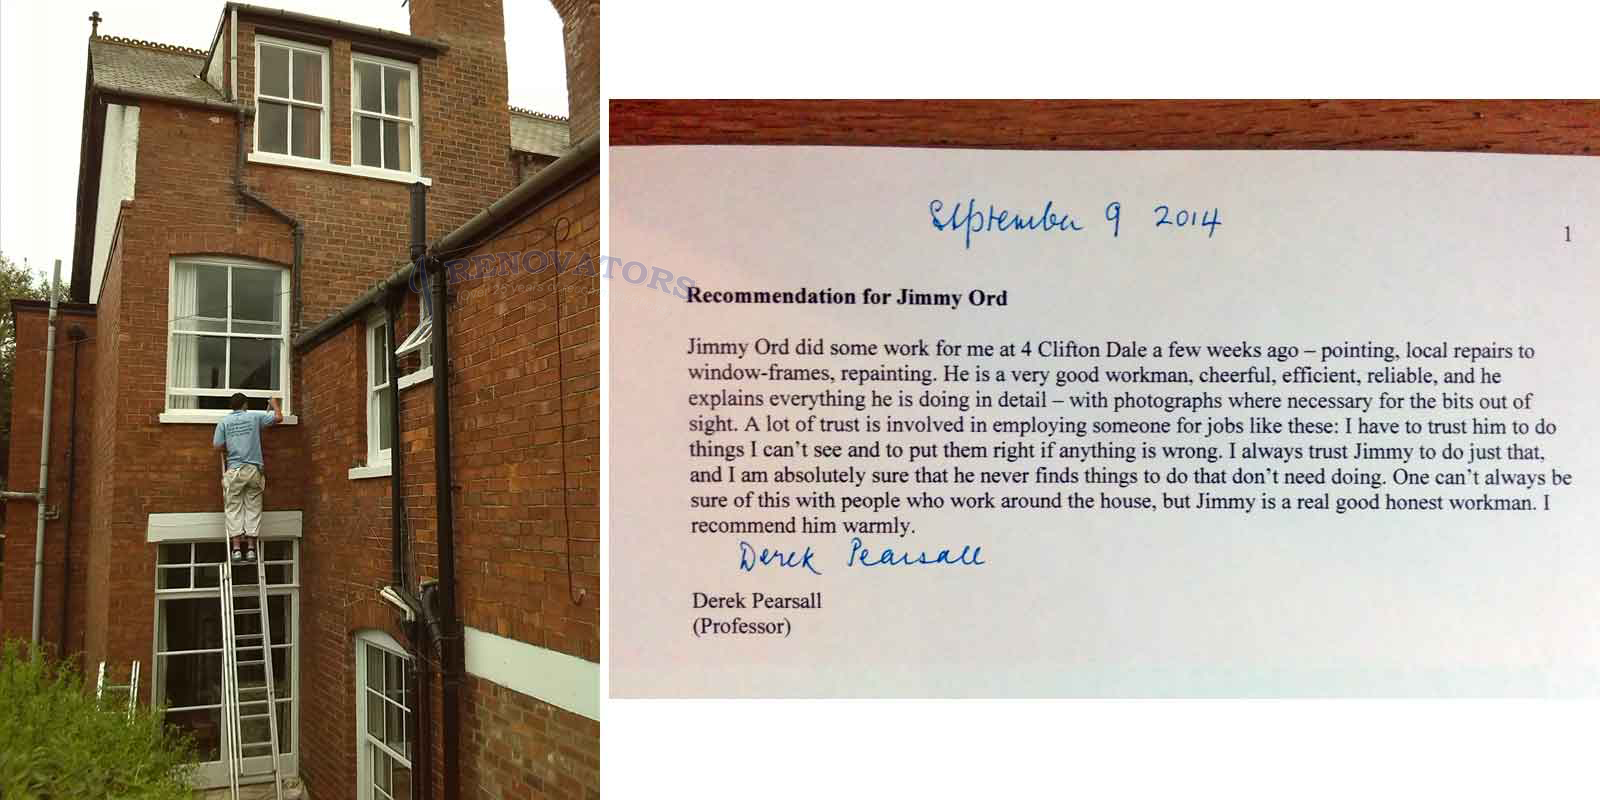 RENOVATORS
September 9 2014
1
Recommendation for Jimmy Ord
Jimmy Ord did some work for me at 4 Clifton Dale a few weeks ago – pointing, local repairs to
window-frames, repainting. He is a very good workman, cheerful, efficient, reliable, and he
explains everything he is doing in detail – with photographs where necessary for the bits out of
sight. A lot of trust is involved in employing someone for jobs like these: I have to trust him to do
things I can't see and to put them right if anything is wrong. I always trust Jimmy to do just that,
and I am absolutely sure that he never finds things to do that don't need doing. One can't always be
sure of this with people who work around the house, but Jimmy is a real good honest workman. I
recommend him warmly.
Derek Pearsall
Derek Pearsall
(Professor)